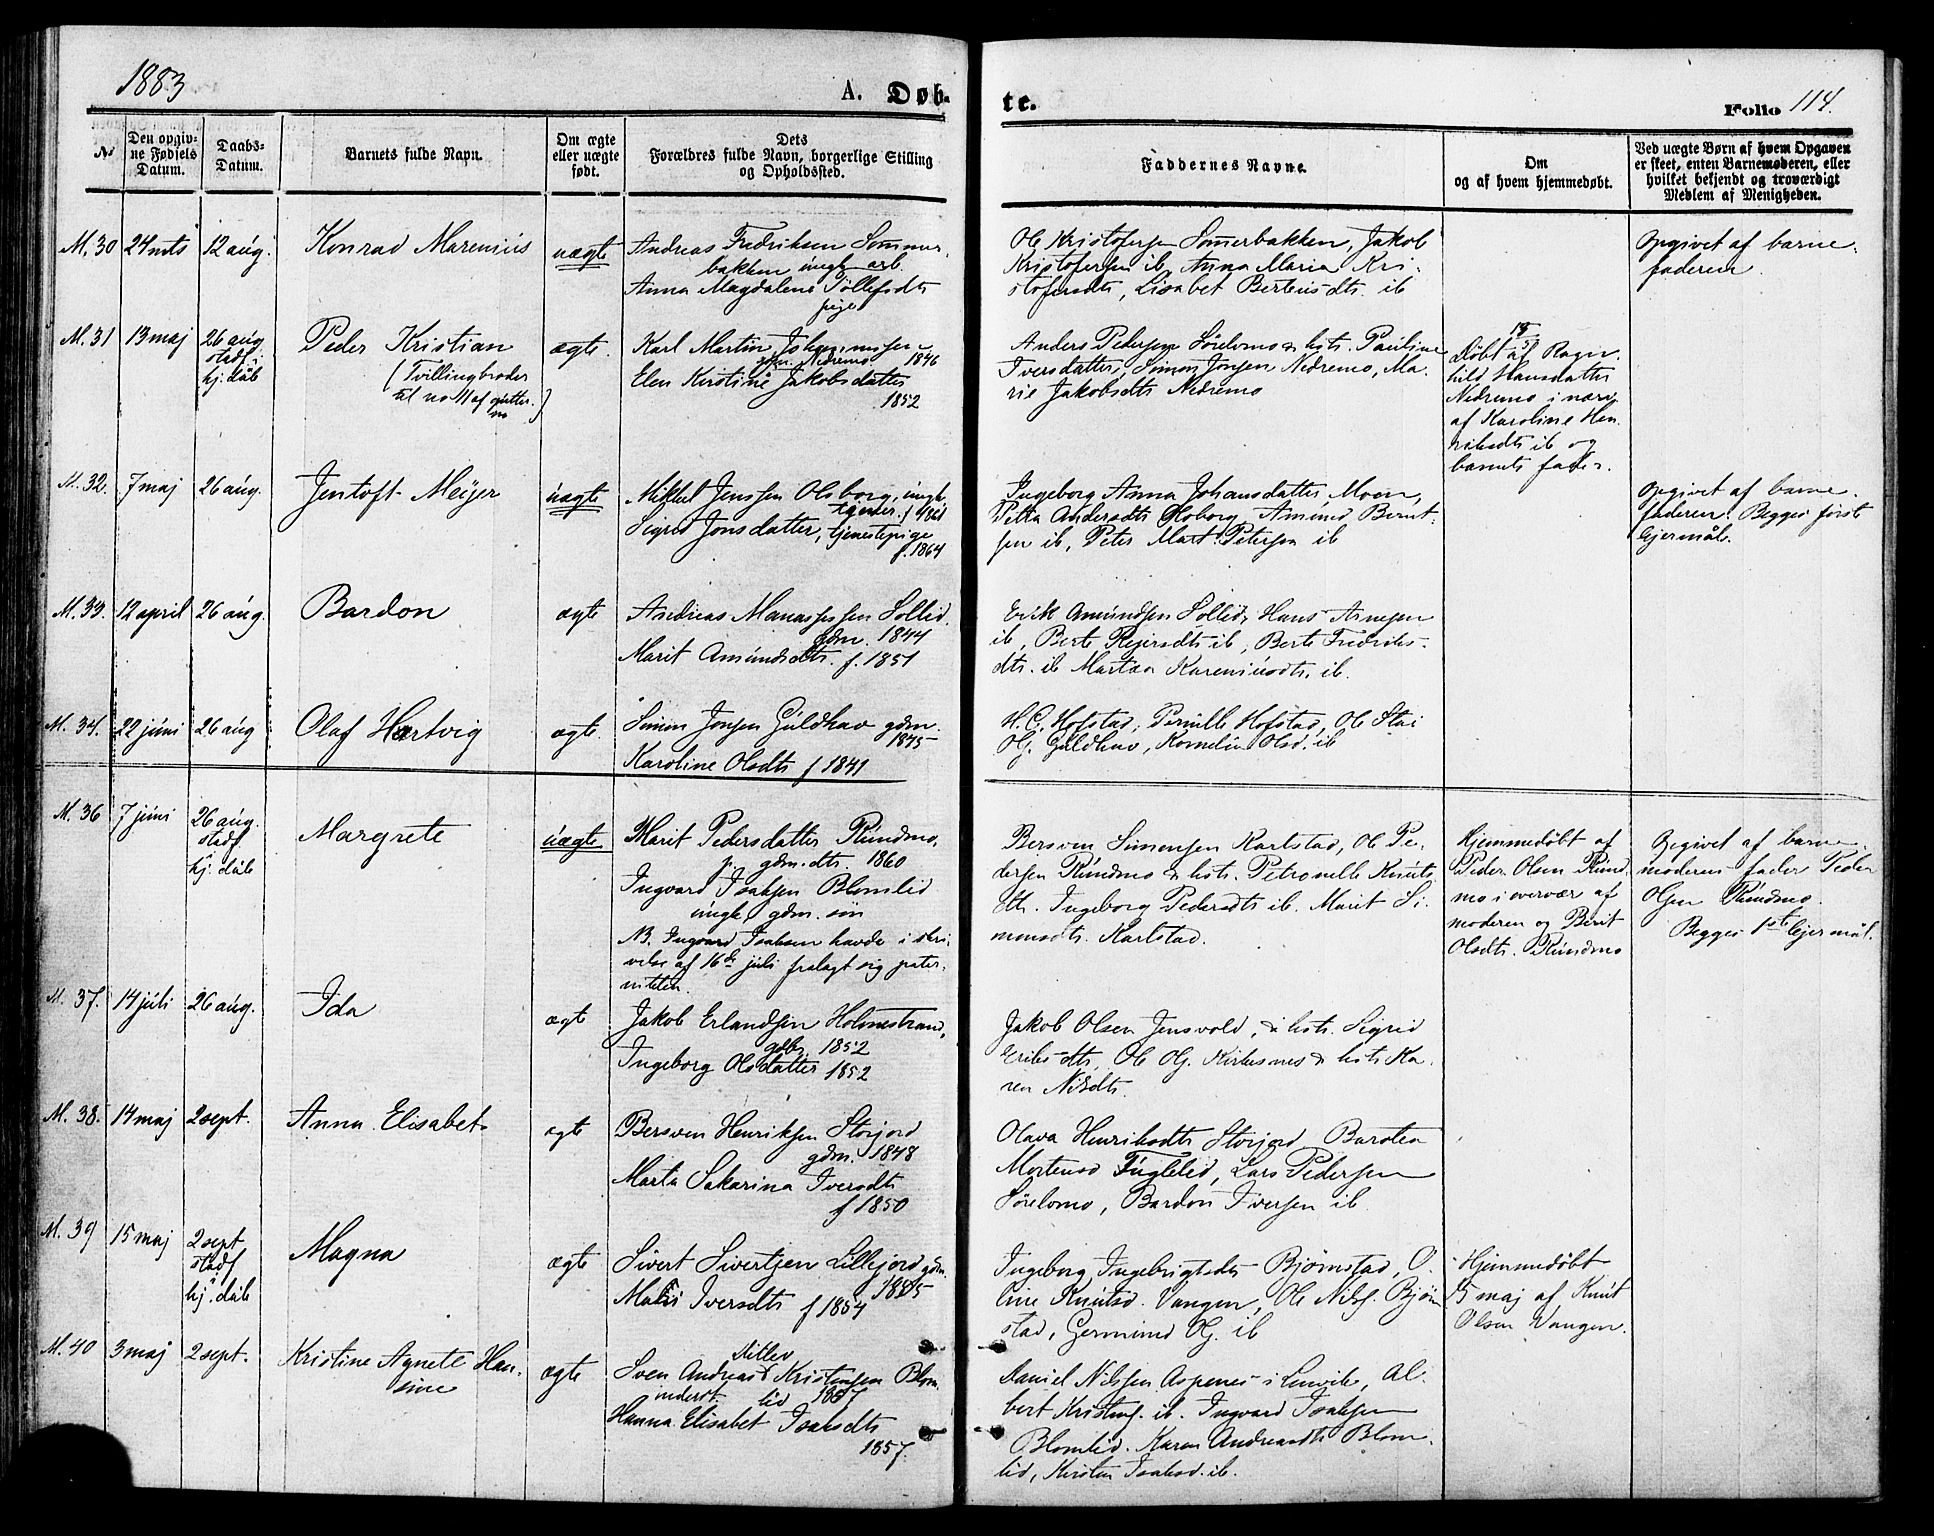 1883
A. Døb-
te.
Folio 114.
No
Den opgiv-
ne Fødsels
Datum.
Daabs-
Datum.
Barnets fulde Navn.
Om ægte
eller uægte
født.
Dets
Forældres fulde Navn, borgerlige Stilling
og Opholdssted.
Faddernes Navne.
Om
og af hvem hjemmedøbt.
Ved uægte Børn af hvem Opgaven
er skeet, enten Barnemoderen, eller
hvilket bekjendt og troværdigt
Medlem af Menigheden.
M. 30
24 mts
12 aug.
Konrad Marenius
uægte
Andreas Fredriksen Sommer-
bakken ungk. arb.
Anna Magdalene Tollefsdtr
pige
Ole Kristofersen Somerbakken, Jakob
Kristofersen ib, Anna Maria Kri-
stofersdtr, Lisabet Berteusdtr. ib
Opgivet af barne-
faderen.
M. 31
13 maj
26 aug
stadf.
hj. dåb
Peder Kristian
(Tvillingbroder
til no 11 af gutter-
ne)
ægte.
Karl Martin Johannessen
Nedremo 1846
Elen Kirstine Jakobsdatter
1852
Anders Pedersen Sørelvmo & hstr. Pauline
Iversdatter, Simon Jonsen Nedremo, Ma-
rie Jakobsdtr Nedremo
Døbt 13/5 af Ragn-
hild Hansdatter
Nedremo i nærv.
af Karoline Hen-
riksdtr ib og
barnets fader.
M. 32.
7 maj
26 aug.
Jentoft Meyer
uægte
Mikkel Jenssen Olsborg, ungk.
tjener. f 1861
Sigrid Jonsdatter, tjenestepige
f. 1864
Ingeborg Anna Johansdatter Moen,
Petra Andersdtr Olsborg, Amund Bernt-
sen ib, Peter Mart. Petersen ib
Opgivet af barne-
faderen. Begges første
lejermål.
M. 33.
12 april
26 aug.
Bardon
ægte
Andreas Manassesen Sollid.
gdm. 1844
Marit Amundsdtr. f. 1851
Erik Amundsen Sollid, Hans Arnesen
ib, Berte Rejersdtr ib, Berte Fredriks-
dtr. ib Martha Kareniusdtr. ib.
M. 34.
22 juni
26 aug
Olaf Hartvig
ægte
Simon Jonsen Guldhav gdm.
1845
Karoline Olsdtr f 1841
H. C. Hofstad, Pernille Hofstad, Ole Stai
Olj. Guldhav, Kornelia Olsd. ib
M. 36
7 juni
26 aug.
stadf.
hj. dåb
Margrete
uægte
Marit Pedersdatter Rundmo,
p. gdm. dtr. 1860
Ingvard Isaksen Blomlid
ungk. gdm. søn
NB. Ingvard Isaksen havde i skri-
velse af 16de juli fralagt sig pater-
niteten.
Bersven Simonsen Karlstad, Ole Pe-
dersen Rundmo & hstr. Petronelle Knuts-
dtr. Ingeborg Pedersdtr ib. Marit Si-
monsdtr. Karlstad.
Hjemmedøbt af
Peder Olsen Rund-
mo i overvær af
moderen og Berit
Olsdtr. Rundmo
Opgivet af barne-
moderens fader Peder
Olsen Rundmo.
Begges 1ste lejermål.
M. 37.
14 juli
26 aug.
Ida
ægte
Jakob Erlandsen Holmestrand,
gdbr. 1852
Ingeborg Olsdatter 1852
Jakob Olsen Jensvold, & hstr. Sigrid
Eriksdtr, Ole Olj. Kirkesnes & hstr Ka-
ren Nilsdtr.
M. 38.
14 maj
2 sept.
Anna Elisabet
ægte
Bersven Henriksen Storjord
gdm. 1848
Marta Sakarina Iversdtr
f 1850
Olava Henriksdtr Storjord Barolea
Mortensd Fuglelid, Lars Pedersen
Sørelvmo, Bardon Iversen ib
M. 39
15 maj
2 sept
stadf.
hj. dåb
Magna
ægte
Sivert Sivertsen Lillejord gdm.
Iversdtr f 1854
Ingeborg Ingebrigtsdtr Bjørnstad, O-
line Knutsd. Vangen, Ole Nilss. Bjørn-
stad, Germund Olj. ib
Hjemmedøbt
15 maj af Knut
Olsen Vangen.
M. 40
3 maj
2 sept.
Kristine Agnete Han-
sine
ægte
Sven Andreas Ditlev Kristensen Blom-
lid 1857
Hanna Elisabet Isaksdtr
1857.
Daniel Nilssen Aspenes i Lenvik, Al-
bert Kristens. ib. Ingvard Isaksen
Blomlid. Karen Andreasdtr Blom-
lid, Kirsten Isaksd. ib.